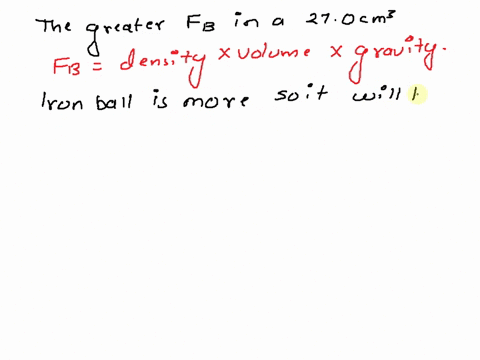 The greater FB in a 27.0 cm³
FB = density × volume × gravity.
Iron ball is more so it will